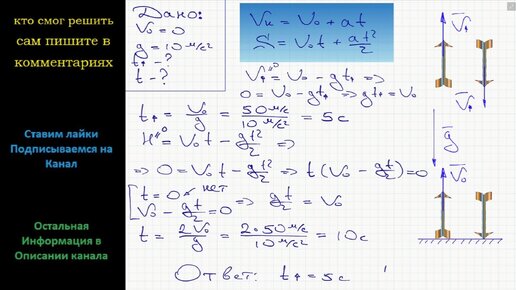 кто смог решить
сам пишите в
комментариях
Ставим лайки
Подписываемся на
Канал
Остальная
Информация в
Описании канала
Дано:
V₀ = 0
g = 10 м/с²
t↑ - ?
t - ?
Vк = V₀ + at
S = V₀t + at²/2
V↑ = V₀ - gt↑ =>
0 = V₀ - gt↑ => gt↑ = V₀
t↑ = V₀/g = 50 м/с / 10 м/с² = 5 с
H = V₀t - gt²/2 =>
=> 0 = V₀t - gt²/2 => t(V₀ - gt/2) = 0
t = 0 нет
V₀ - gt/2 = 0 => gt/2 = V₀
t = 2V₀/g = 2·50 м/с / 10 м/с² = 10 с
Ответ: t↑ = 5 с
V↑
g
V₀